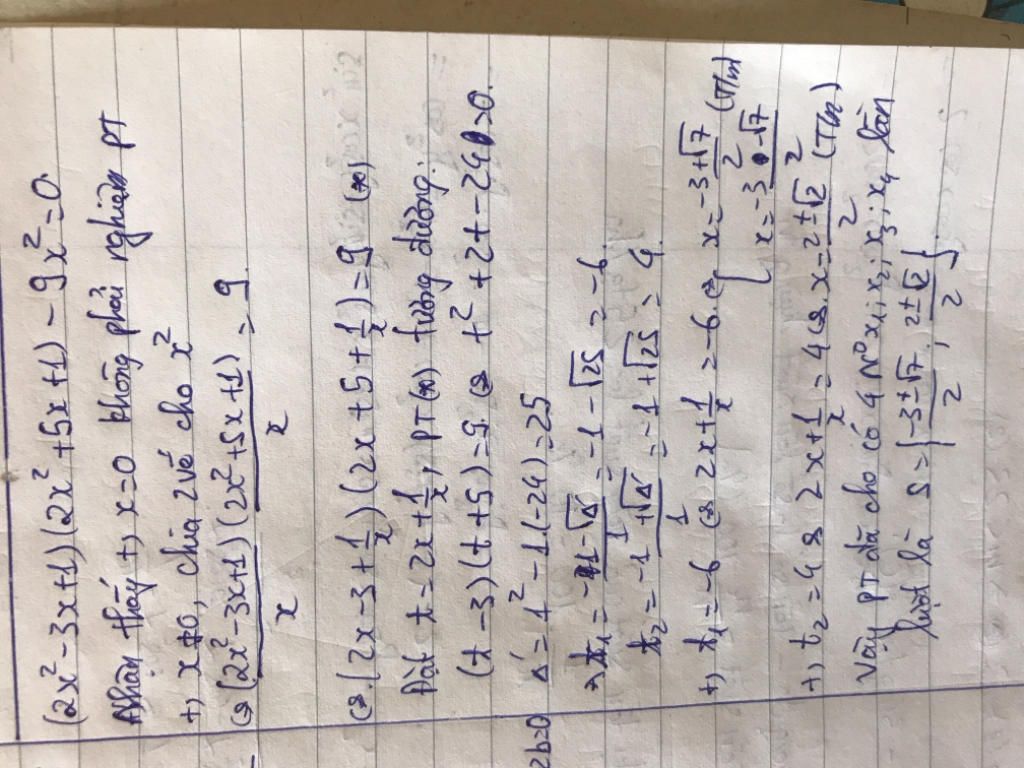 (2x² - 3x + 1)(2x² + 5x + 1) - 9x² = 0.
Nhận thấy +) x = 0 không phải nghiệm PT
+) x ≠ 0, chia 2 vế cho x²
⇔ (2x² - 3x + 1)/x (2x² + 5x + 1)/x = 9.
⇔ (2x - 3 + 1/x)(2x + 5 + 1/x) = 9 (*)
Đặt t = 2x + 1/x, PT(*) tương đương:
(t - 3)(t + 5) = 9 ⇔ t² + 2t - 24 = 0.
2b=0
Δ' = 1² - 1.(-24) = 25
⇒ t₁ = (-1 - √Δ')/1 = -1 - √25 = -6.
t₂ = (-1 + √Δ')/1 = -1 + √25 = 4.
+) t₁ = -6 ⇔ 2x + 1/x = -6 ⇔ [ x = (-3 + √7)/2 (T/m)
x = (-3 - √7)/2
+) t₂ = 4 ⇔ 2x + 1/x = 4 ⇔ x = (2 ± √2)/2 (T/m)
Vậy PT đã cho có 4 N⁰ x₁; x₂; x₃; x₄ lần
lượt là S = {(-3 ± √7)/2; (2 ± √2)/2}